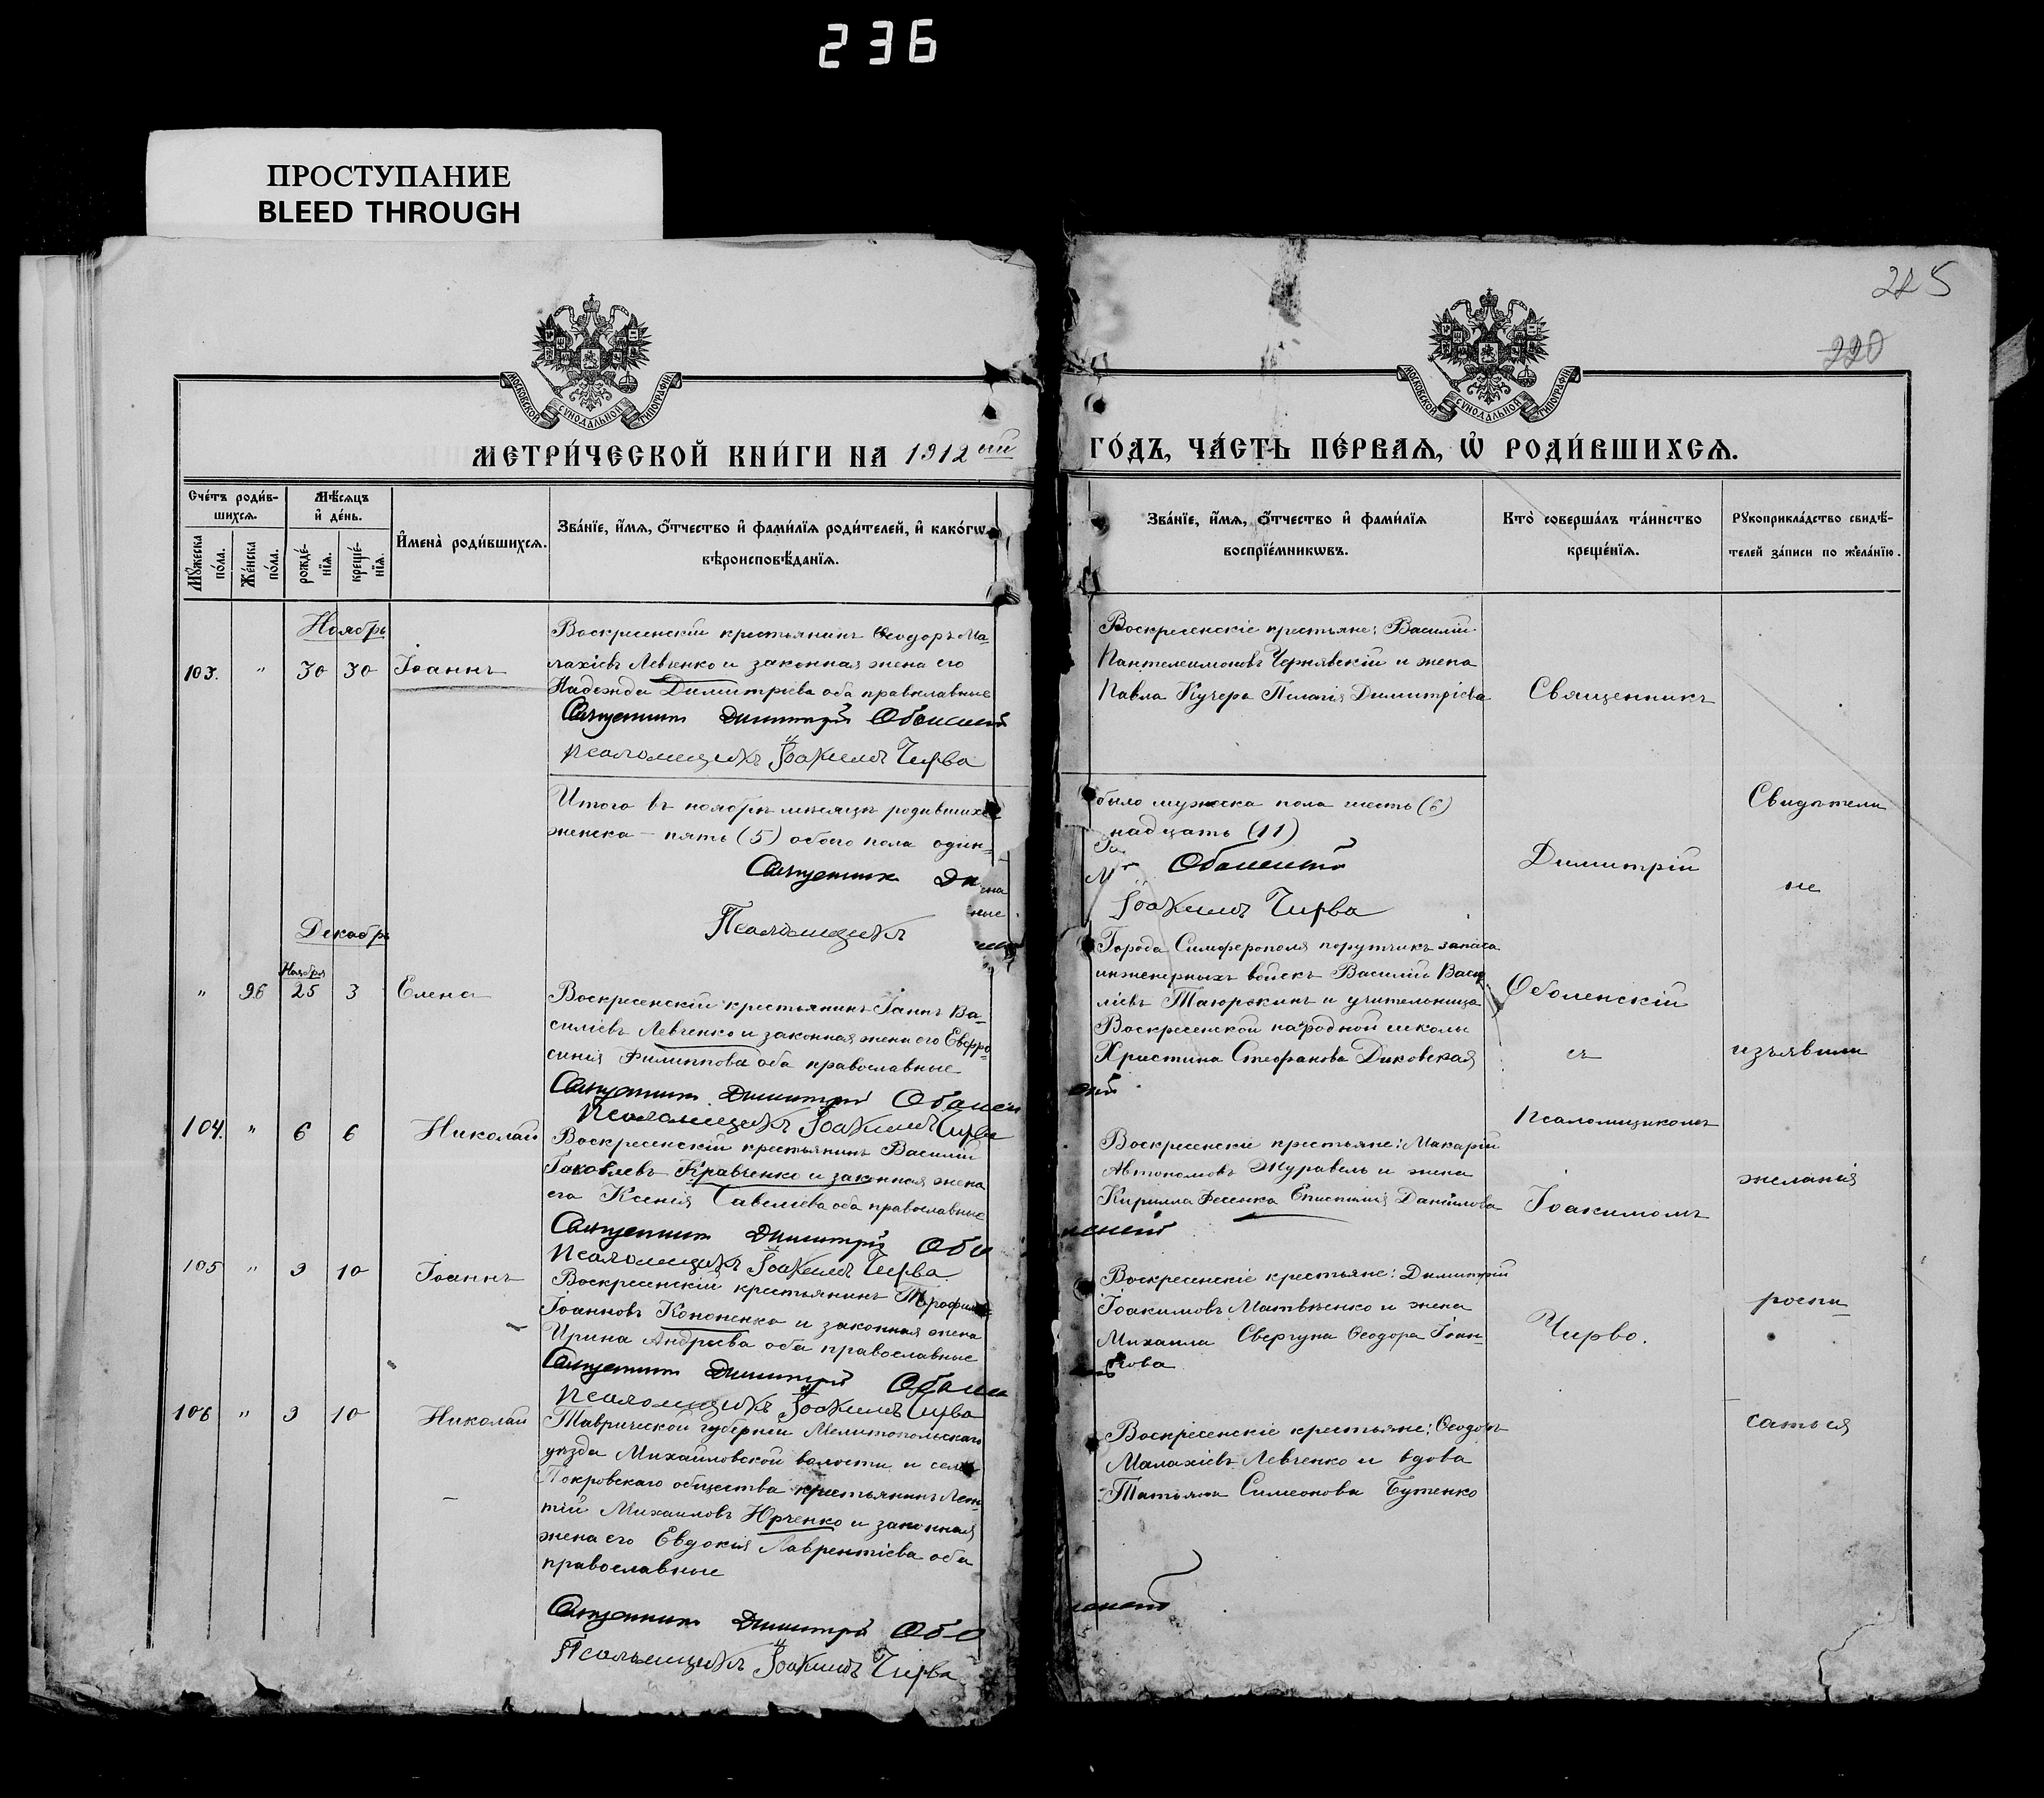 236
ПРОСТУПАНИЕ
BLEED THROUGH
225
220
МОСКОВСКОЙ СѴНОДАЛЬНОЙ ТИПОГРАФІИ
МОСКОВСКОЙ СѴНОДАЛЬНОЙ ТИПОГРАФІИ
МЕТРИ́ЧЕСКОЙ КНИ́ГИ НА 1912 ый
ГО́ДЪ, ЧА́СТЬ ПЕ́РВАЯ, Ѡ РОДИ́ВШИХСЯ.
Сче́тъ роди́в-
шихся.
Мѣ́сяцъ
и҆ де́нь.
Мꙋ́жеска по́ла.
Же́нска по́ла.
рожде́-
нїя.
креще́-
нїя.
И҆мена̀ роди́вшихся.
Зва́нїе, и҆́мя, ѻ҆́тчество и҆ фами́лїя роди́телей, и҆ како́гѡ
вѣроисповѣ́данїя.
Зва́нїе, и҆́мя, ѻ҆́тчество и҆ фами́лїя
воспрїе́мникѡвъ.
Кто̀ соверша́лъ та́инство
креще́нїя.
Рꙋкоприкла́дство свидѣ́-
телей за́писи по жела́нїю.
Ноябрь
103. " 30 30 Іоаннъ
Воскресенскій крестьянинъ Ѳеодоръ Ма-
лахіевъ Левченко и законная жена его
Надежда Димитріева оба православные
Священникъ Димитрій Оболенскій
Псаломщикъ Іоакимъ Чирва
Воскресенскіе крестьяне: Василій
Пантелеимоновъ Чернявскій и жена
Павла Кучера Пелагія Димитріева
Священникъ
Итого въ ноябрѣ мѣсяцѣ родившихся
женска - пять (5) обоего пола один-
Священникъ Ди
Псаломщикъ
было мужеска пола шесть (6)
надцать (11)
Оболенскій
Іоакимъ Чирва
Свидѣтели
Димитрій
не
Декабрь
Ноября
" 96 25 3 Елена
Воскресенскій крестьянинъ Іоаннъ Ва-
силіевъ Левченко и законная жена его Евфро-
синія Филиппова оба православные
Священникъ Димитрій Оболен
Псаломщикъ Іоакимъ Чирва
Города Симферополя порутчикъ запаса
инженерныхъ войскъ Василій Васи
ліевъ и учительница
Воскресенской народной школы
Христина Стефанова Диковская
скій
Оболенскій
съ
изъявили
104. " 6 6 Николай
Воскресенскій крестьянинъ Василій
Іаковлевъ Кравченко и законная жена
его Ксенія Савеліева оба православные
Священникъ Димитрій Обо
Псаломщикъ Іоакимъ Чирва
Воскресенскіе крестьяне: Макарій
Автономовъ Журавель и жена
Кирилла Фесенка Епистимія Даніилова
ленскій
псаломщикомъ
Іоакимомъ
желанія
105 " 9 10 Іоаннъ
Воскресенскій крестьянинъ Трофимъ
Іоанновъ Кононенко и законная жена
Ирина Андреева оба православные
Священникъ Димитрій Оболен
Псаломщикъ Іоакимъ Чирва
Воскресенскіе крестьяне: Димитрій
Іоакимовъ Матвѣенко и жена
Михаила Свергуна Ѳеодора Іоан-
нова
Чирво.
роспи
106 " 9 10 Николай
Таврической губерніи Мелитопольскаго
уѣзда Михайловской волости и села
Покровскаго общества крестьянинъ Леон-
тій Михаиловъ Юрченко и законная
жена его Евдокія Лаврентіева оба
православные
Священникъ Димитрій Обо
Псаломщикъ Іоакимъ Чирва
Воскресенскіе крестьяне: Ѳеодоръ
Малахіевъ Левченко и вдова
Татьяна Симеонова Бутенко
ленскій
саться